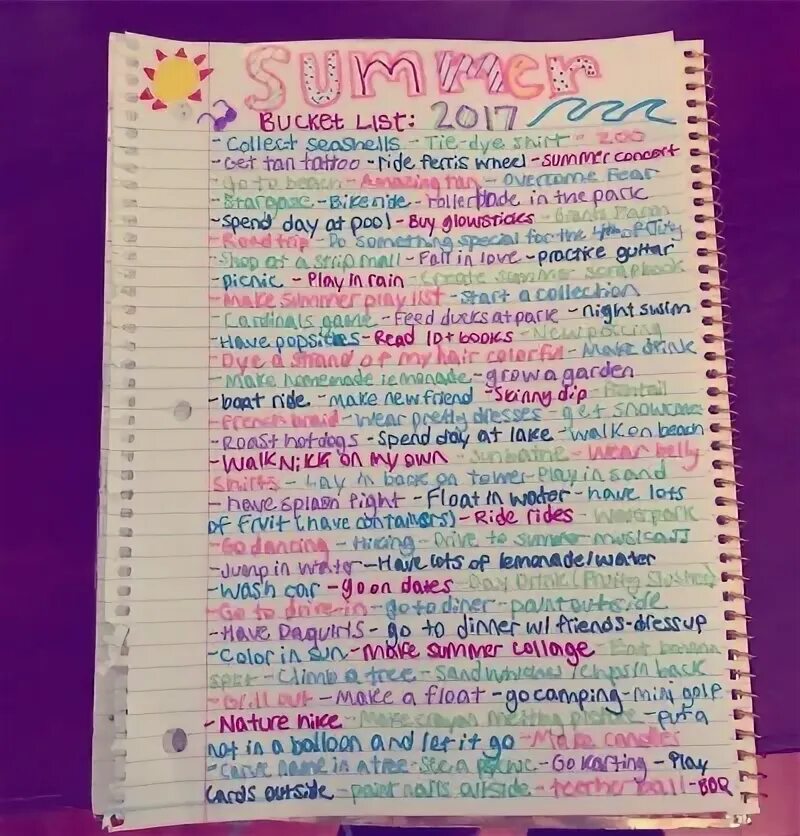 SUMMER
BUCKET LIST: 2017
- Collect seashells - Tie-dye shirt - zoo
- Get tan tattoo - ride ferris wheel - summer concert
- go to beach - Amazing tan - overcome fear
- Stargaze - Bike ride - rollerblade in the park
- Spend day at pool - Buy glowsticks -
- Road trip - Do something special for the 4th of July
- Shop at a strip mall - Fall in love - practice guitar
- picnic - Play in rain - create summer scrapbook
- Make summer playlist - start a collection
- Cardinals game - Feed ducks at park - night swim
- Have popsicles - Read 10+ books - New piercing
- Dye a strand of my hair colorful - Make drink
- Make homemade lemonade - grow a garden
- boat ride - make new friend - Skinny dip -
- French braid - wear pretty dresses - get snowcone
- Roast hotdogs - spend day at lake - walk on beach
- Walk Nikki on my own - Sunbathe - Wear belly
shirts - Lay in back on tower - Play in sand
- have splash fight - Float in water - have lots
of fruit (have containers) - Ride rides - waterpark
- Go dancing - Hiking - Drive to summer music
- Jump in water - Have lots of lemonade/water
- Wash car - go on dates - Day Drink (Fruity Slushes)
- Go to drive-in - go to diner - paint outside
- Have Daquiris - go to dinner w/ friends - dress up
- Color in sun - make summer collage - Eat banana
split - Climb a tree - Sandwiches/chips in back
- Grill out - Make a float - go camping - mini golf
- Nature hike - Make crayon melting picture - put a
not in a balloon and let it go - Make candles
- Carve name in a tree - see a - Go Karting - Play
cards outside - paint nails outside - teether ball - BBQ